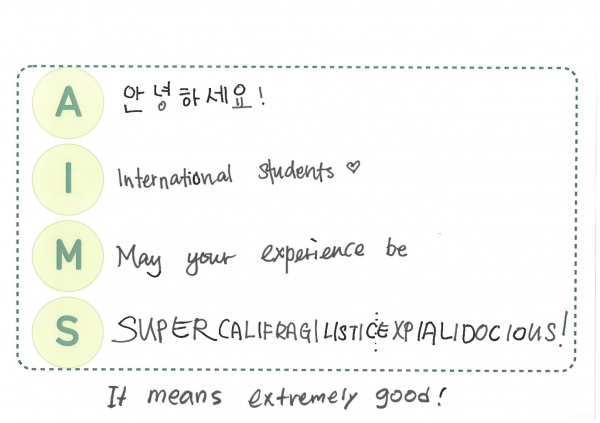 A 안녕하세요!
I International students ♡
M May your experience be
S SUPERCALIFRAGILISTICEXPIALIDOCIOUS!
It means extremely good!